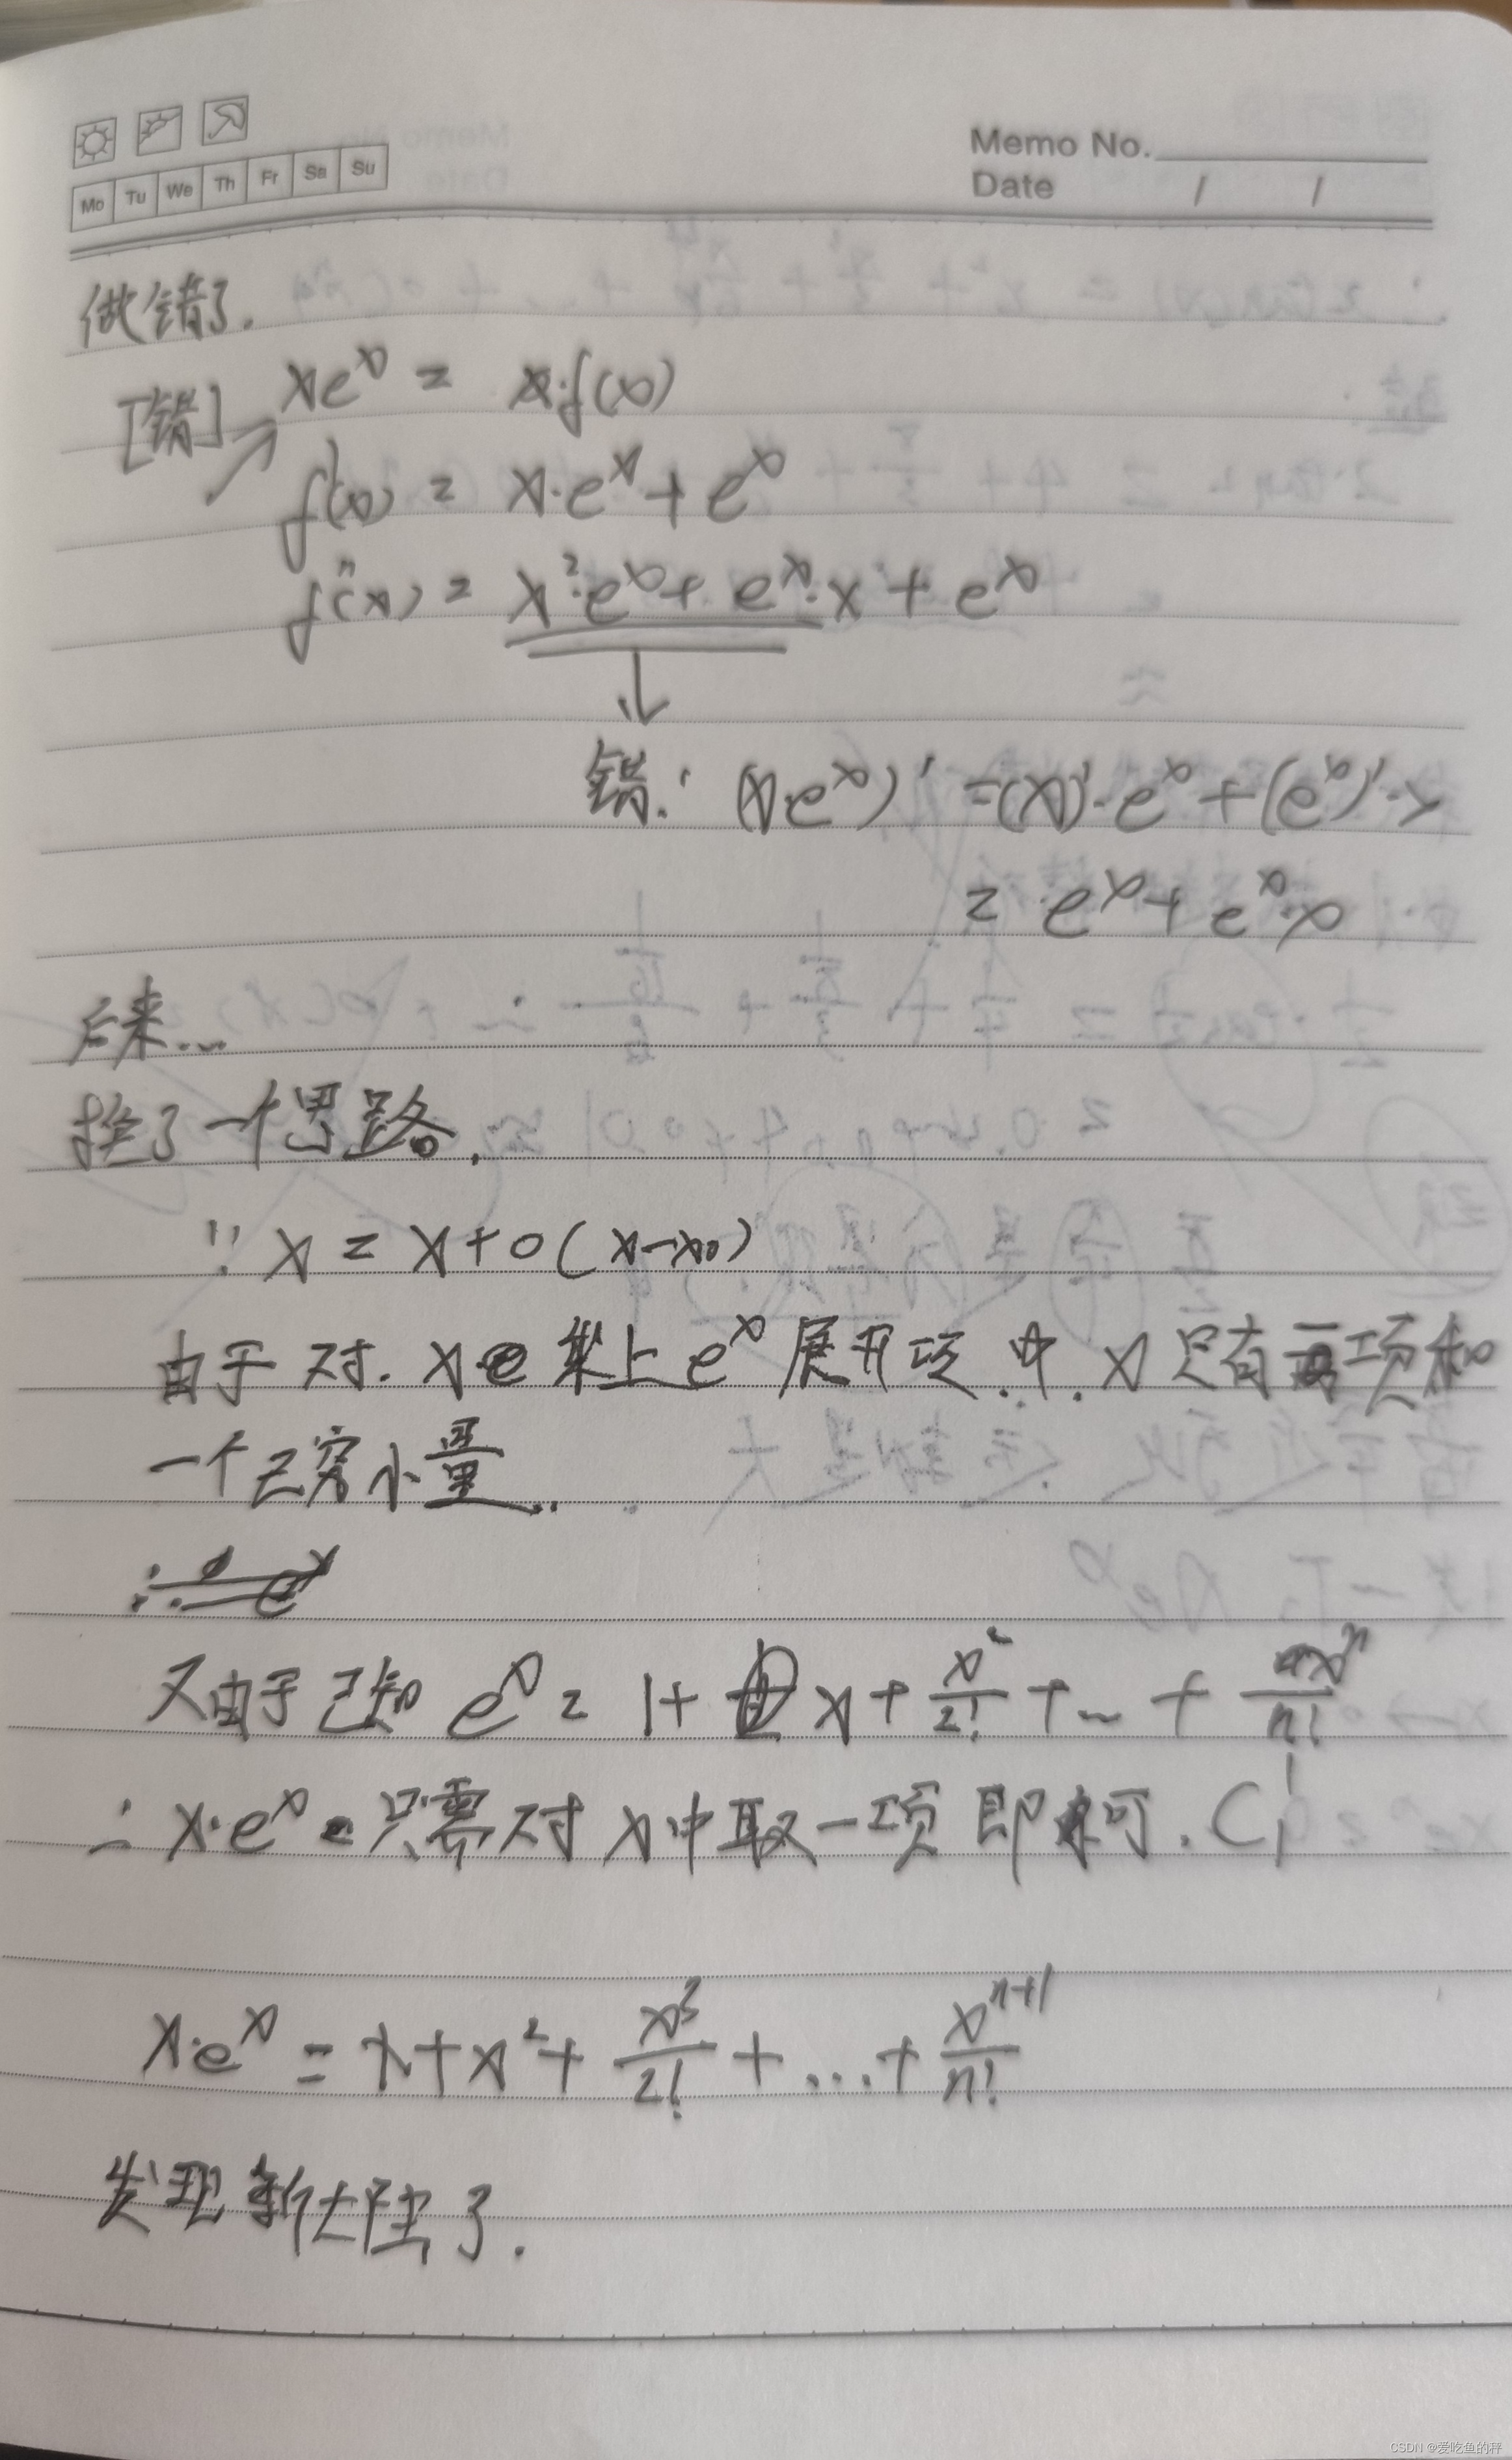 Memo No.
Mo Tu We Th Fr Sa Su
Date / /
做错了.
[错] xe^x = x·f(x)
f'(x) = x·e^x + e^x
f''(x) = x²·e^x + e^x·x + e^x
错: (x·e^x)' = (x)'·e^x + (e^x)'·x
= e^x + e^x·x
后来...
推了一个思路.
∵ x = x + o(x-x₀)
由于对. x 乘上 e^x 展开项.中. x 只有一项和
一个无穷小量..
又由于已知 e^x = 1 + x + x²/2! + ... + x^n/n!
∴ x·e^x 只需对 x 中取一项即可. C₁¹
x·e^x = x + x² + x³/2! + ... + x^(n+1)/n!
发现新大陆了.
CSDN @爱吃鱼的秤